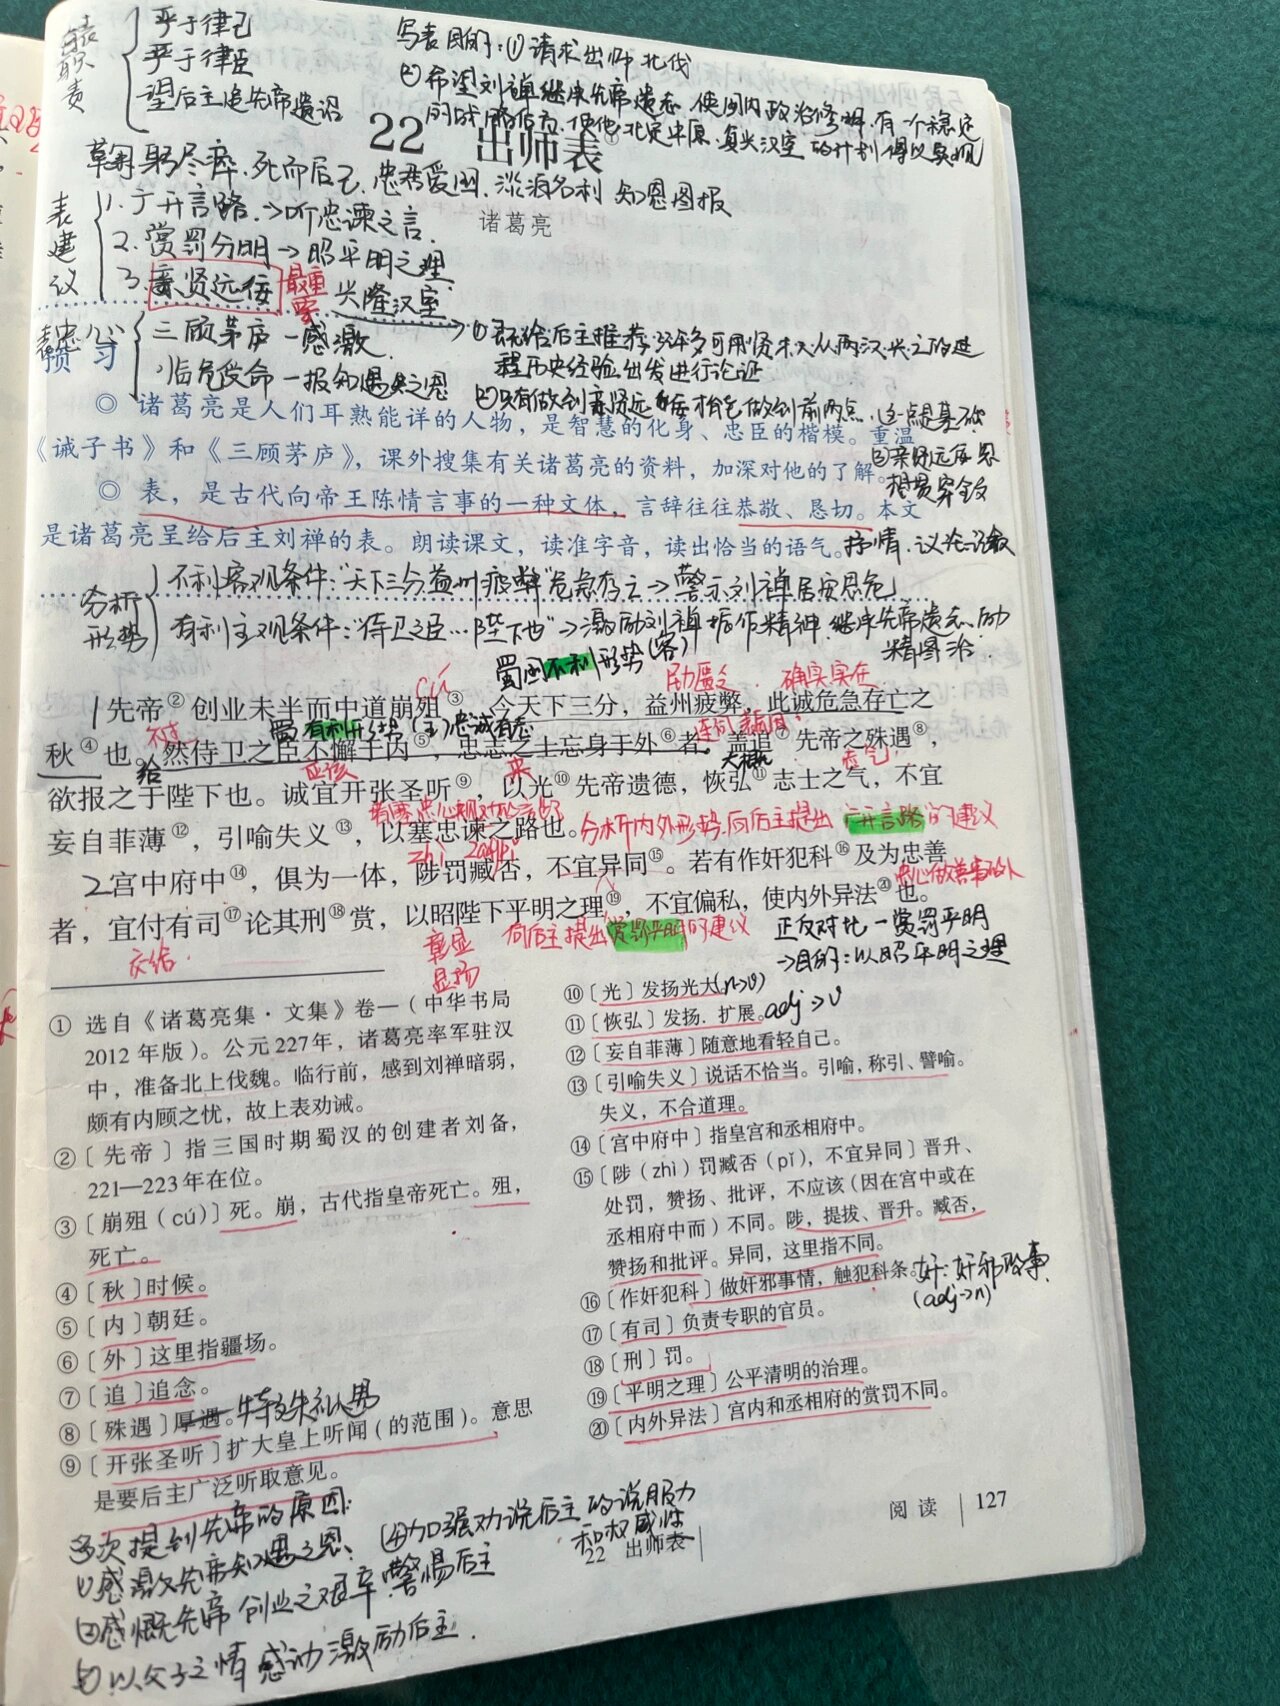 表职责
严于律己
严于律臣
望后主追先帝遗诏
写表目的:①请求出师北伐
②希望刘禅继承先帝遗志,使国内政治修明,有一个稳定
的战略后方,使他北定中原,复兴汉室的计划得以实现
22 出师表①
鞠躬尽瘁,死而后已,忠君爱国,淡泊名利 知恩图报
诸葛亮
表建议
1.广开言路→听忠谏之言.
2.赏罚分明→昭平明之理
3.亲贤远佞 最重要 兴隆汉室
表忠心
三顾茅庐—感激.
临危受命—报知遇之恩
→①既给后主推荐许多可用贤才,又从两汉兴亡的进
程历史经验出发进行论证
②只有做到亲贤远佞才能做到前两点,这一点是基础.
③亲贤远佞思
想贯穿全文
预习
◎ 诸葛亮是人们耳熟能详的人物,是智慧的化身、忠臣的楷模。重温
《诫子书》和《三顾茅庐》,课外搜集有关诸葛亮的资料,加深对他的了解。
◎ 表,是古代向帝王陈情言事的一种文体,言辞往往恭敬、恳切。本文
是诸葛亮呈给后主刘禅的表。朗读课文,读准字音,读出恰当的语气。
抒情,议论,记叙
分析形势
不利客观条件:“天下三分,益州疲弊”危急存亡→警示刘禅居安思危
有利主观条件:“侍卫之臣…陛下也”→激励刘禅振作精神,继承先帝遗志,励
精图治.
蜀国不利形势(客)
cú
确实实在
1先帝②创业未半而中道崩殂③,今天下三分,益州疲弊,此诚危急存亡之
不过
有利形势(主)忠诚有志
大概
秋④也。然侍卫之臣不懈于内⑤,忠志之士忘身于外⑥者,盖追⑦先帝之殊遇⑧,
给
应该
来
志气
欲报之于陛下也。诚宜开张圣听⑨,以光⑩先帝遗德,恢弘⑪志士之气,不宜
妄自菲薄⑫,引喻失义⑬,以塞忠谏之路也。
分析内外形势,向后主提出广开言路的建议
zhì zāngpǐ
2宫中府中⑭,俱为一体,陟罚臧否,不宜异同⑮。若有作奸犯科⑯及为忠善
忠心做善事的人
者,宜付有司⑰论其刑⑱赏,以昭陛下平明之理⑲,不宜偏私,使内外异法⑳也。
交给.
彰显
显扬
向后主提出赏罚平明的建议
正反对比—赏罚平明
→目的:以昭平明之理
① 选自《诸葛亮集·文集》卷一(中华书局
2012年版)。公元227年,诸葛亮率军驻汉
中,准备北上伐魏。临行前,感到刘禅暗弱,
颇有内顾之忧,故上表劝诫。
②〔先帝〕指三国时期蜀汉的创建者刘备,
221—223年在位。
③〔崩殂(cú)〕死。崩,古代指皇帝死亡。殂,
死亡。
④〔秋〕时候。
⑤〔内〕朝廷。
⑥〔外〕这里指疆场。
⑦〔追〕追念。
⑧〔殊遇〕厚遇。特殊礼遇
⑨〔开张圣听〕扩大皇上听闻(的范围)。意思
是要后主广泛听取意见。
⑩〔光〕发扬光大。(n→v)
⑪〔恢弘〕发扬、扩展。adj→v
⑫〔妄自菲薄〕随意地看轻自己。
⑬〔引喻失义〕说话不恰当。引喻,称引、譬喻。
失义,不合道理。
⑭〔宫中府中〕指皇宫和丞相府中。
⑮〔陟(zhì)罚臧否(pǐ),不宜异同〕晋升、
处罚,赞扬、批评,不应该(因在宫中或在
丞相府中而)不同。陟,提拔、晋升。臧否,
赞扬和批评。异同,这里指不同。
⑯〔作奸犯科〕做奸邪事情,触犯科条。奸:奸邪的事.
(adj→n)
⑰〔有司〕负责专职的官员。
⑱〔刑〕罚。
⑲〔平明之理〕公平清明的治理。
⑳〔内外异法〕宫内和丞相府的赏罚不同。
阅读 127
22 出师表
多次提到先帝的原因:
①感激先帝知遇之恩、
②感慨先帝创业之艰辛,警惕后主
③以父子之情感动激励后主.
④加强劝说后主的说服力
和权威性